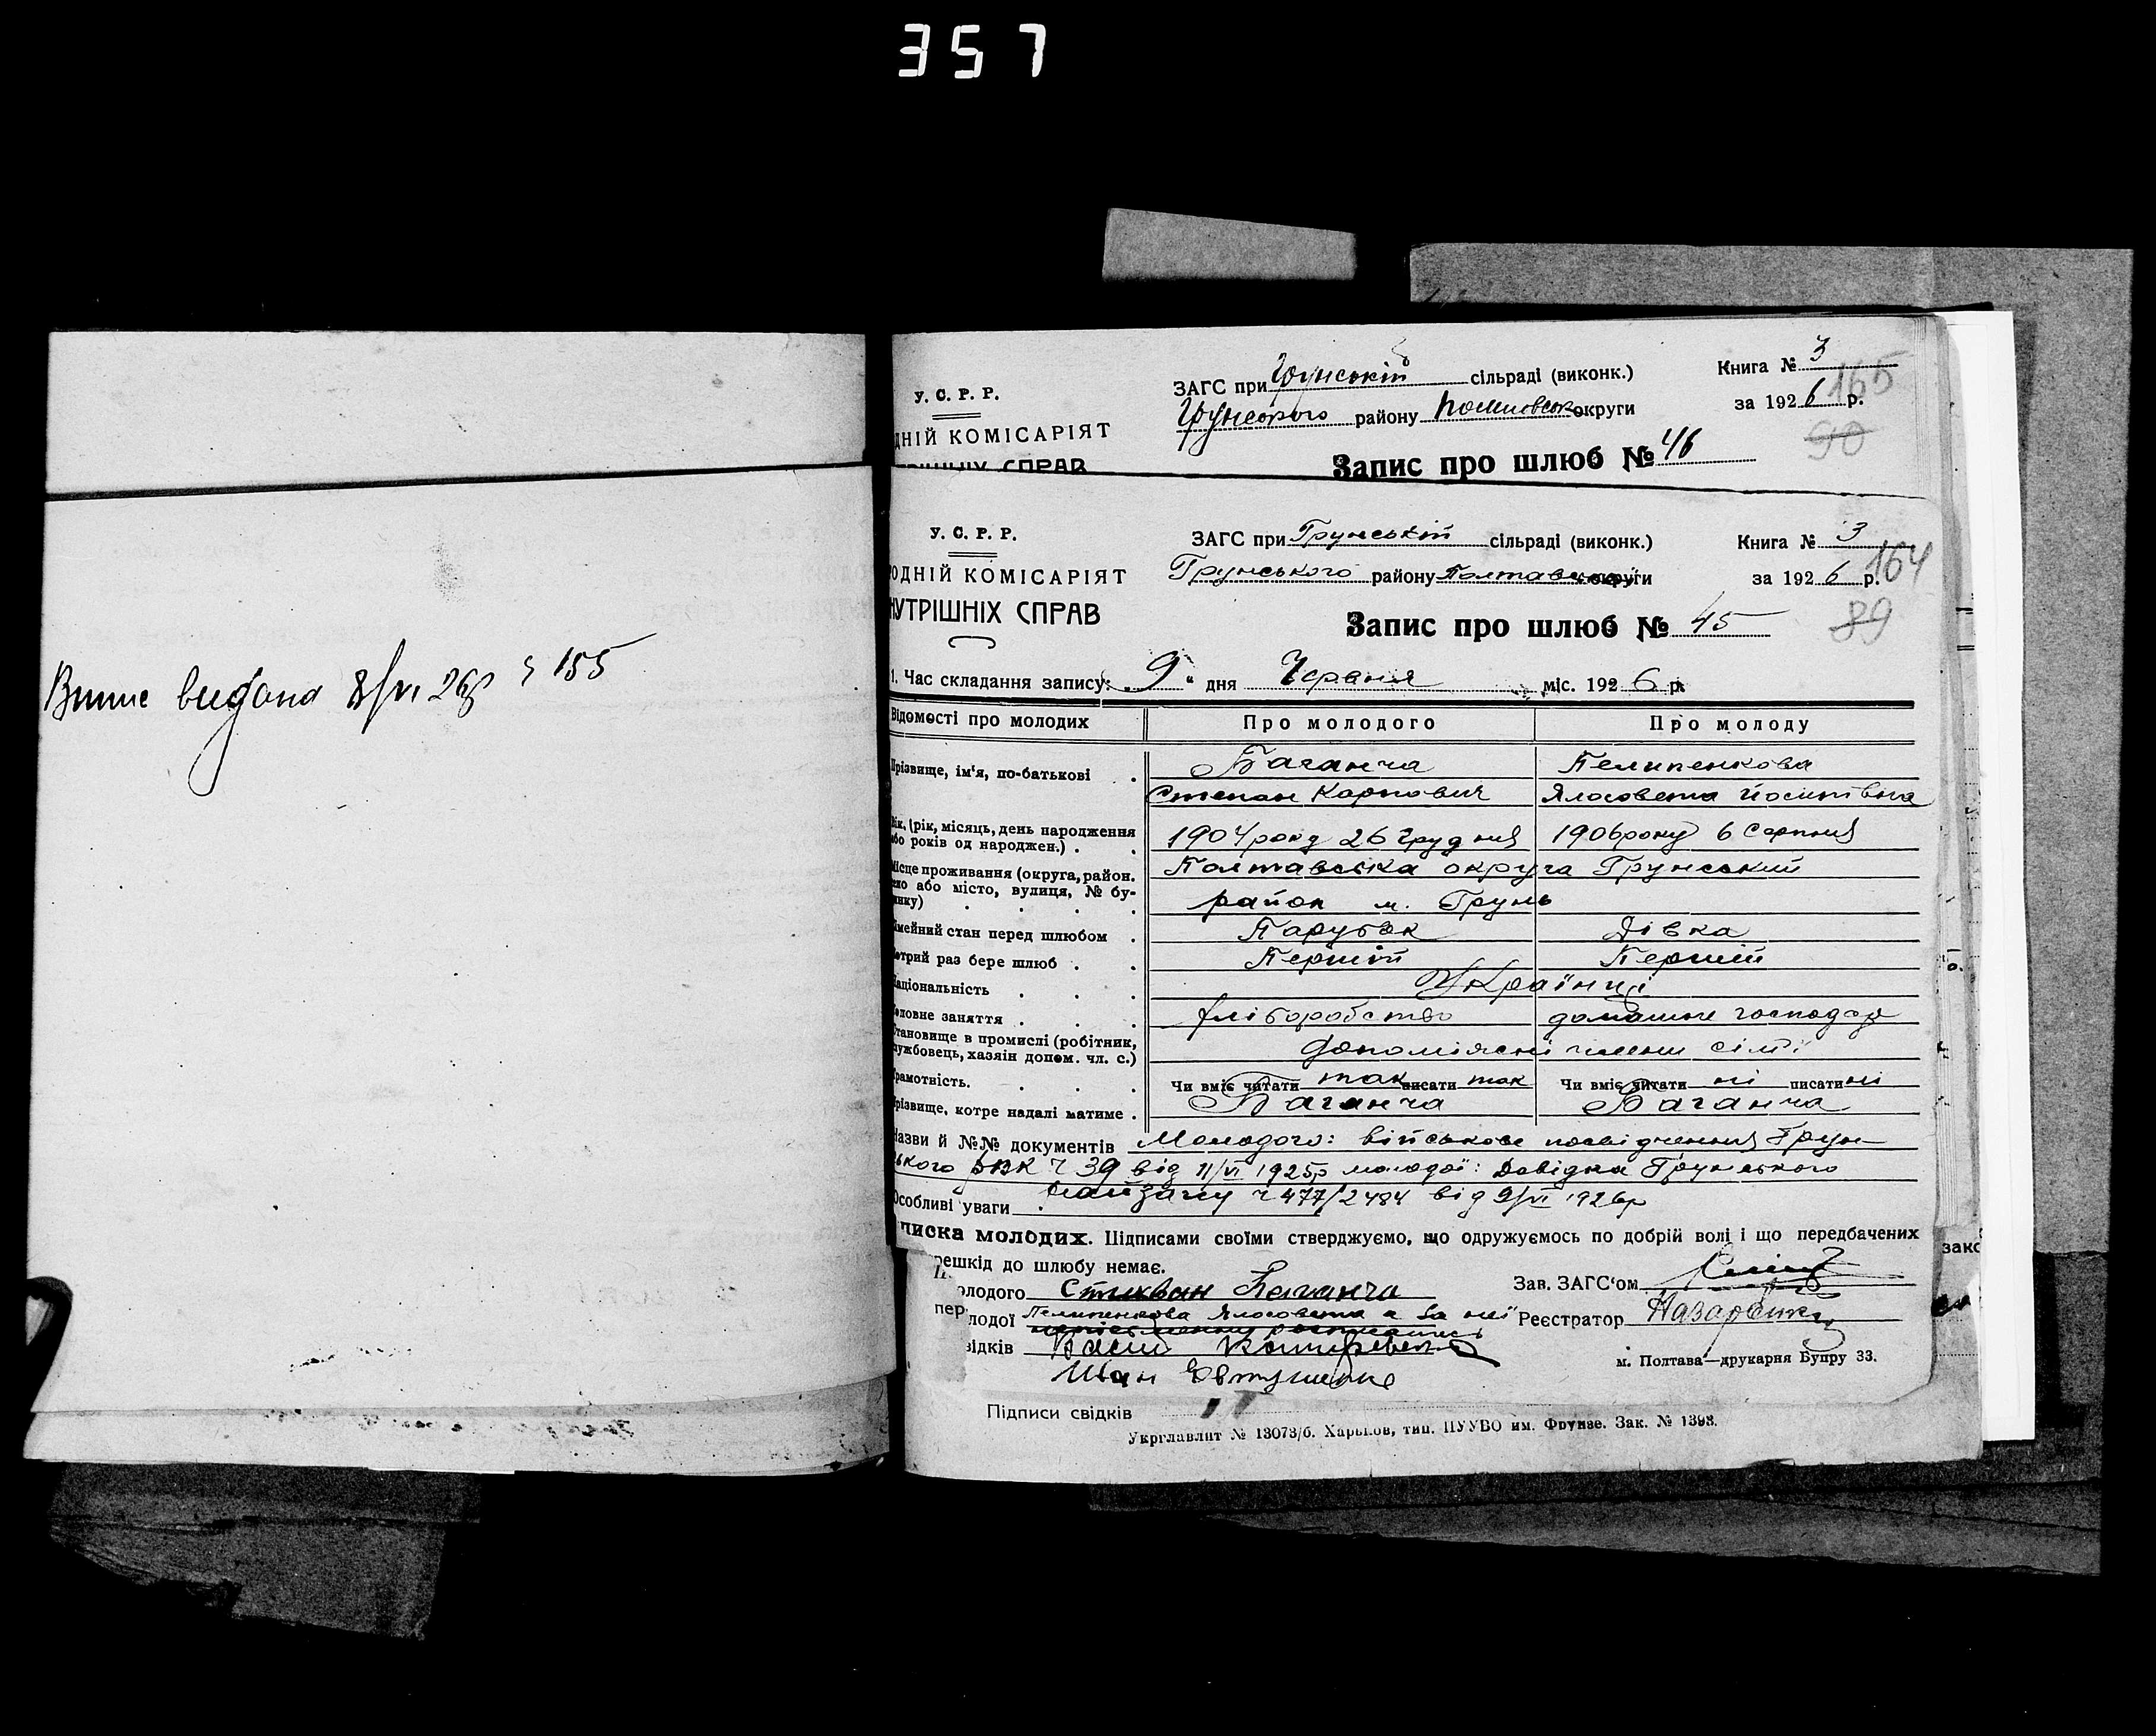 357
Випис видана 8/VI 26р ч 155
У. С. Р. Р.
ДНІЙ КОМІСАРІЯТ
ЗАГС при Грунській сільраді (виконк.)
Грунського району Полтавськ округи
Книга № 3
за 1926 р.
165
90
Запис про шлюб № 46
У. С. Р. Р.
ОДНІЙ КОМІСАРІЯТ
НУТРІШНІХ СПРАВ
ЗАГС при Грунській сільраді (виконк.)
Грунського району Полтавської округи
Книга № 3
за 1926 р.
164
89
Запис про шлюб № 45
1. Час складання запису: „9“ дня Червня міс. 1926 р.
Відомості про молодих Про молодого Про молоду
Прізвище, ім'я, по-батькові . Баганча Пелипенкова
Степан Карпович Ялосовета Йосипівна
Вік. (рік, місяць, день народження
або років од народжен.) . . 1904 року 26 Грудня 1906 року 6 Серпня
Місце проживання (округа, район.
село або місто, вулиця, № бу-
динку) . . . . Полтавська округа Грунський
район м. Грунь
Сімейний стан перед шлюбом . Парубок Дівка
Котрий раз бере шлюб . . Перший Перший
Національність . . . Українці
Головне заняття . . . хліборобство домашнє господар
Становище в промислі (робітник,
службовець, хазяін допом. чл. с.) допоміжні члени сім'ї
Грамотність. . . . Чи вміє читати так писати так Чи вміє читати ні писати ні
Прізвище, котре надалі матиме . Баганча Баганча
Назви й №№ документів Молодого: військове посвідчення Грун-
ського РВК ч 39 від 11/VI 1925р молодої: Довідка Грунського
ч 477/2484 від 9/VI 1926р
Особливі уваги
писка молодих. Підписами своїми стверджуємо, що одружуємось по добрій волі і що передбачених
решкід до шлюбу немає.
олодого Степан Баганча
Зав. ЗАГС'ом
лодої Пелипенкова Ялосовета а за неї
Реєстратор Назаренко
відків
Іван Євтушенко
м. Полтава—друкарня Бупру 33.
зако
Підписи свідків
Укрглавлит № 13073/б. Харьков, тип. ПУУВО им. Фрунзе. Зак. № 1398.